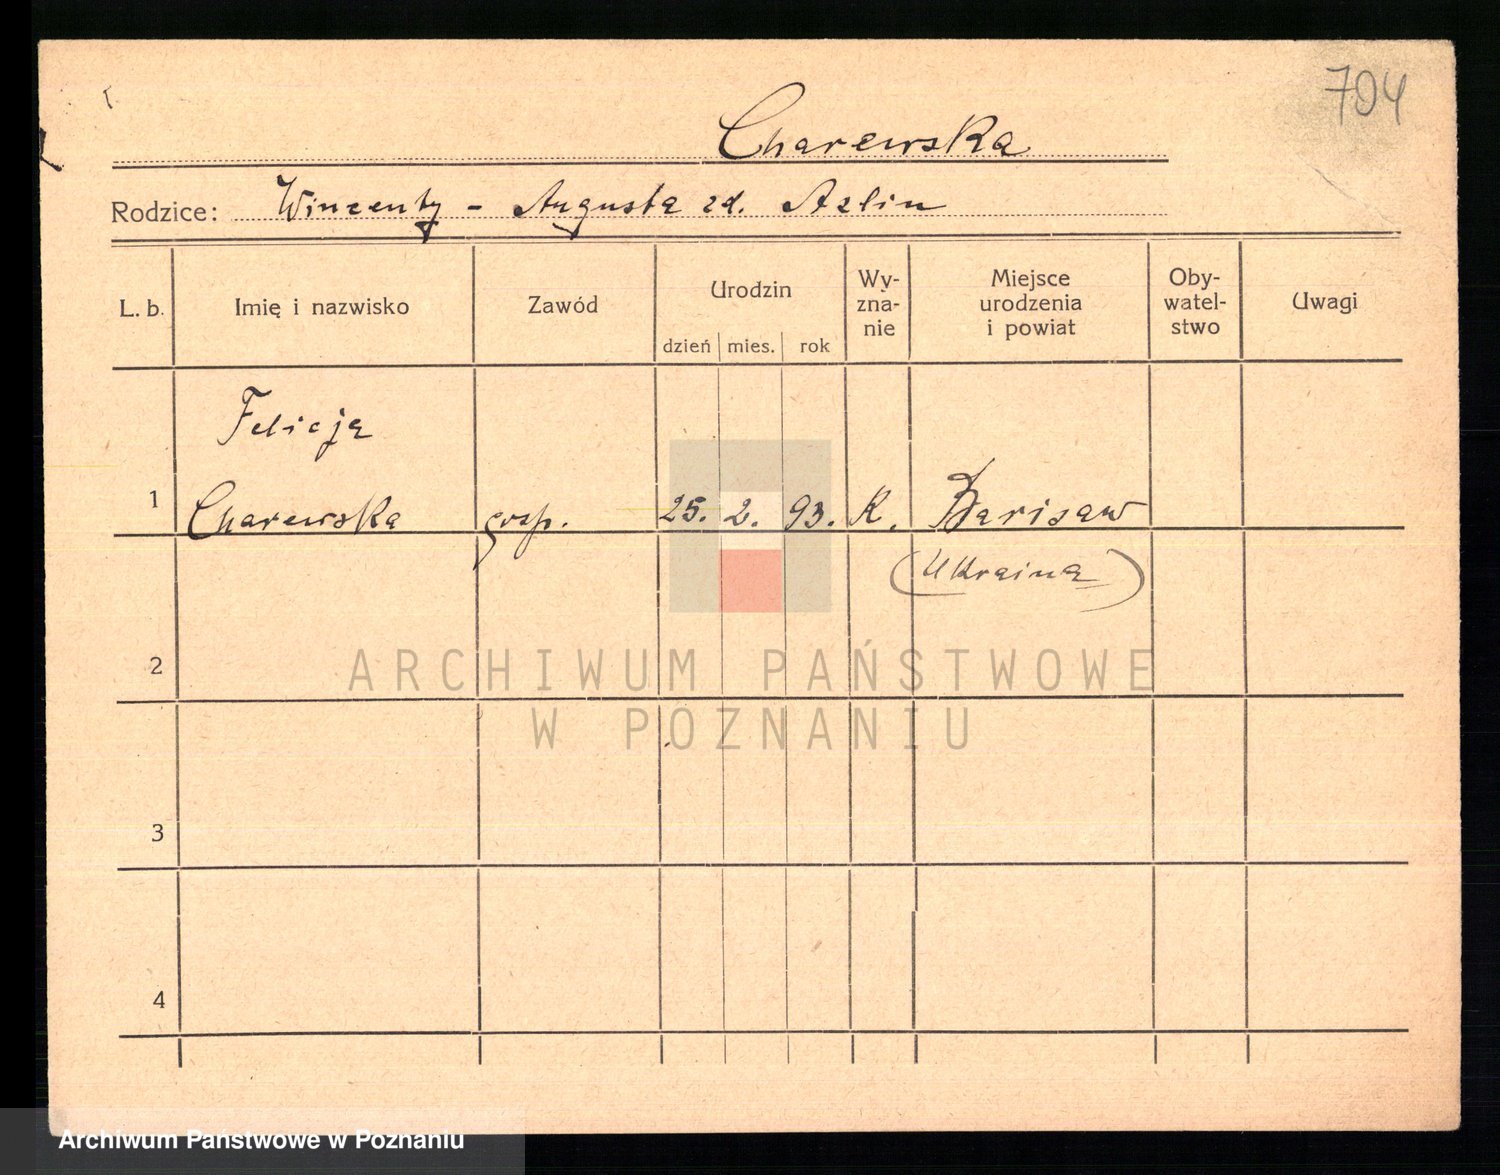 704
Charewska
Rodzice: Wincenty - Augusta zd. Azlin
L. b. Imię i nazwisko Zawód Urodzin dzień mies. rok Wy-zna-nie Miejsce urodzenia i powiat Oby-watel-stwo Uwagi
Felicja
1 Charewska gosp. 25. 2. 93. K. Barisaw
(Ukraina)
2
ARCHIWUM PAŃSTWOWE
W POZNANIU
3
4
Archiwum Państwowe w Poznaniu